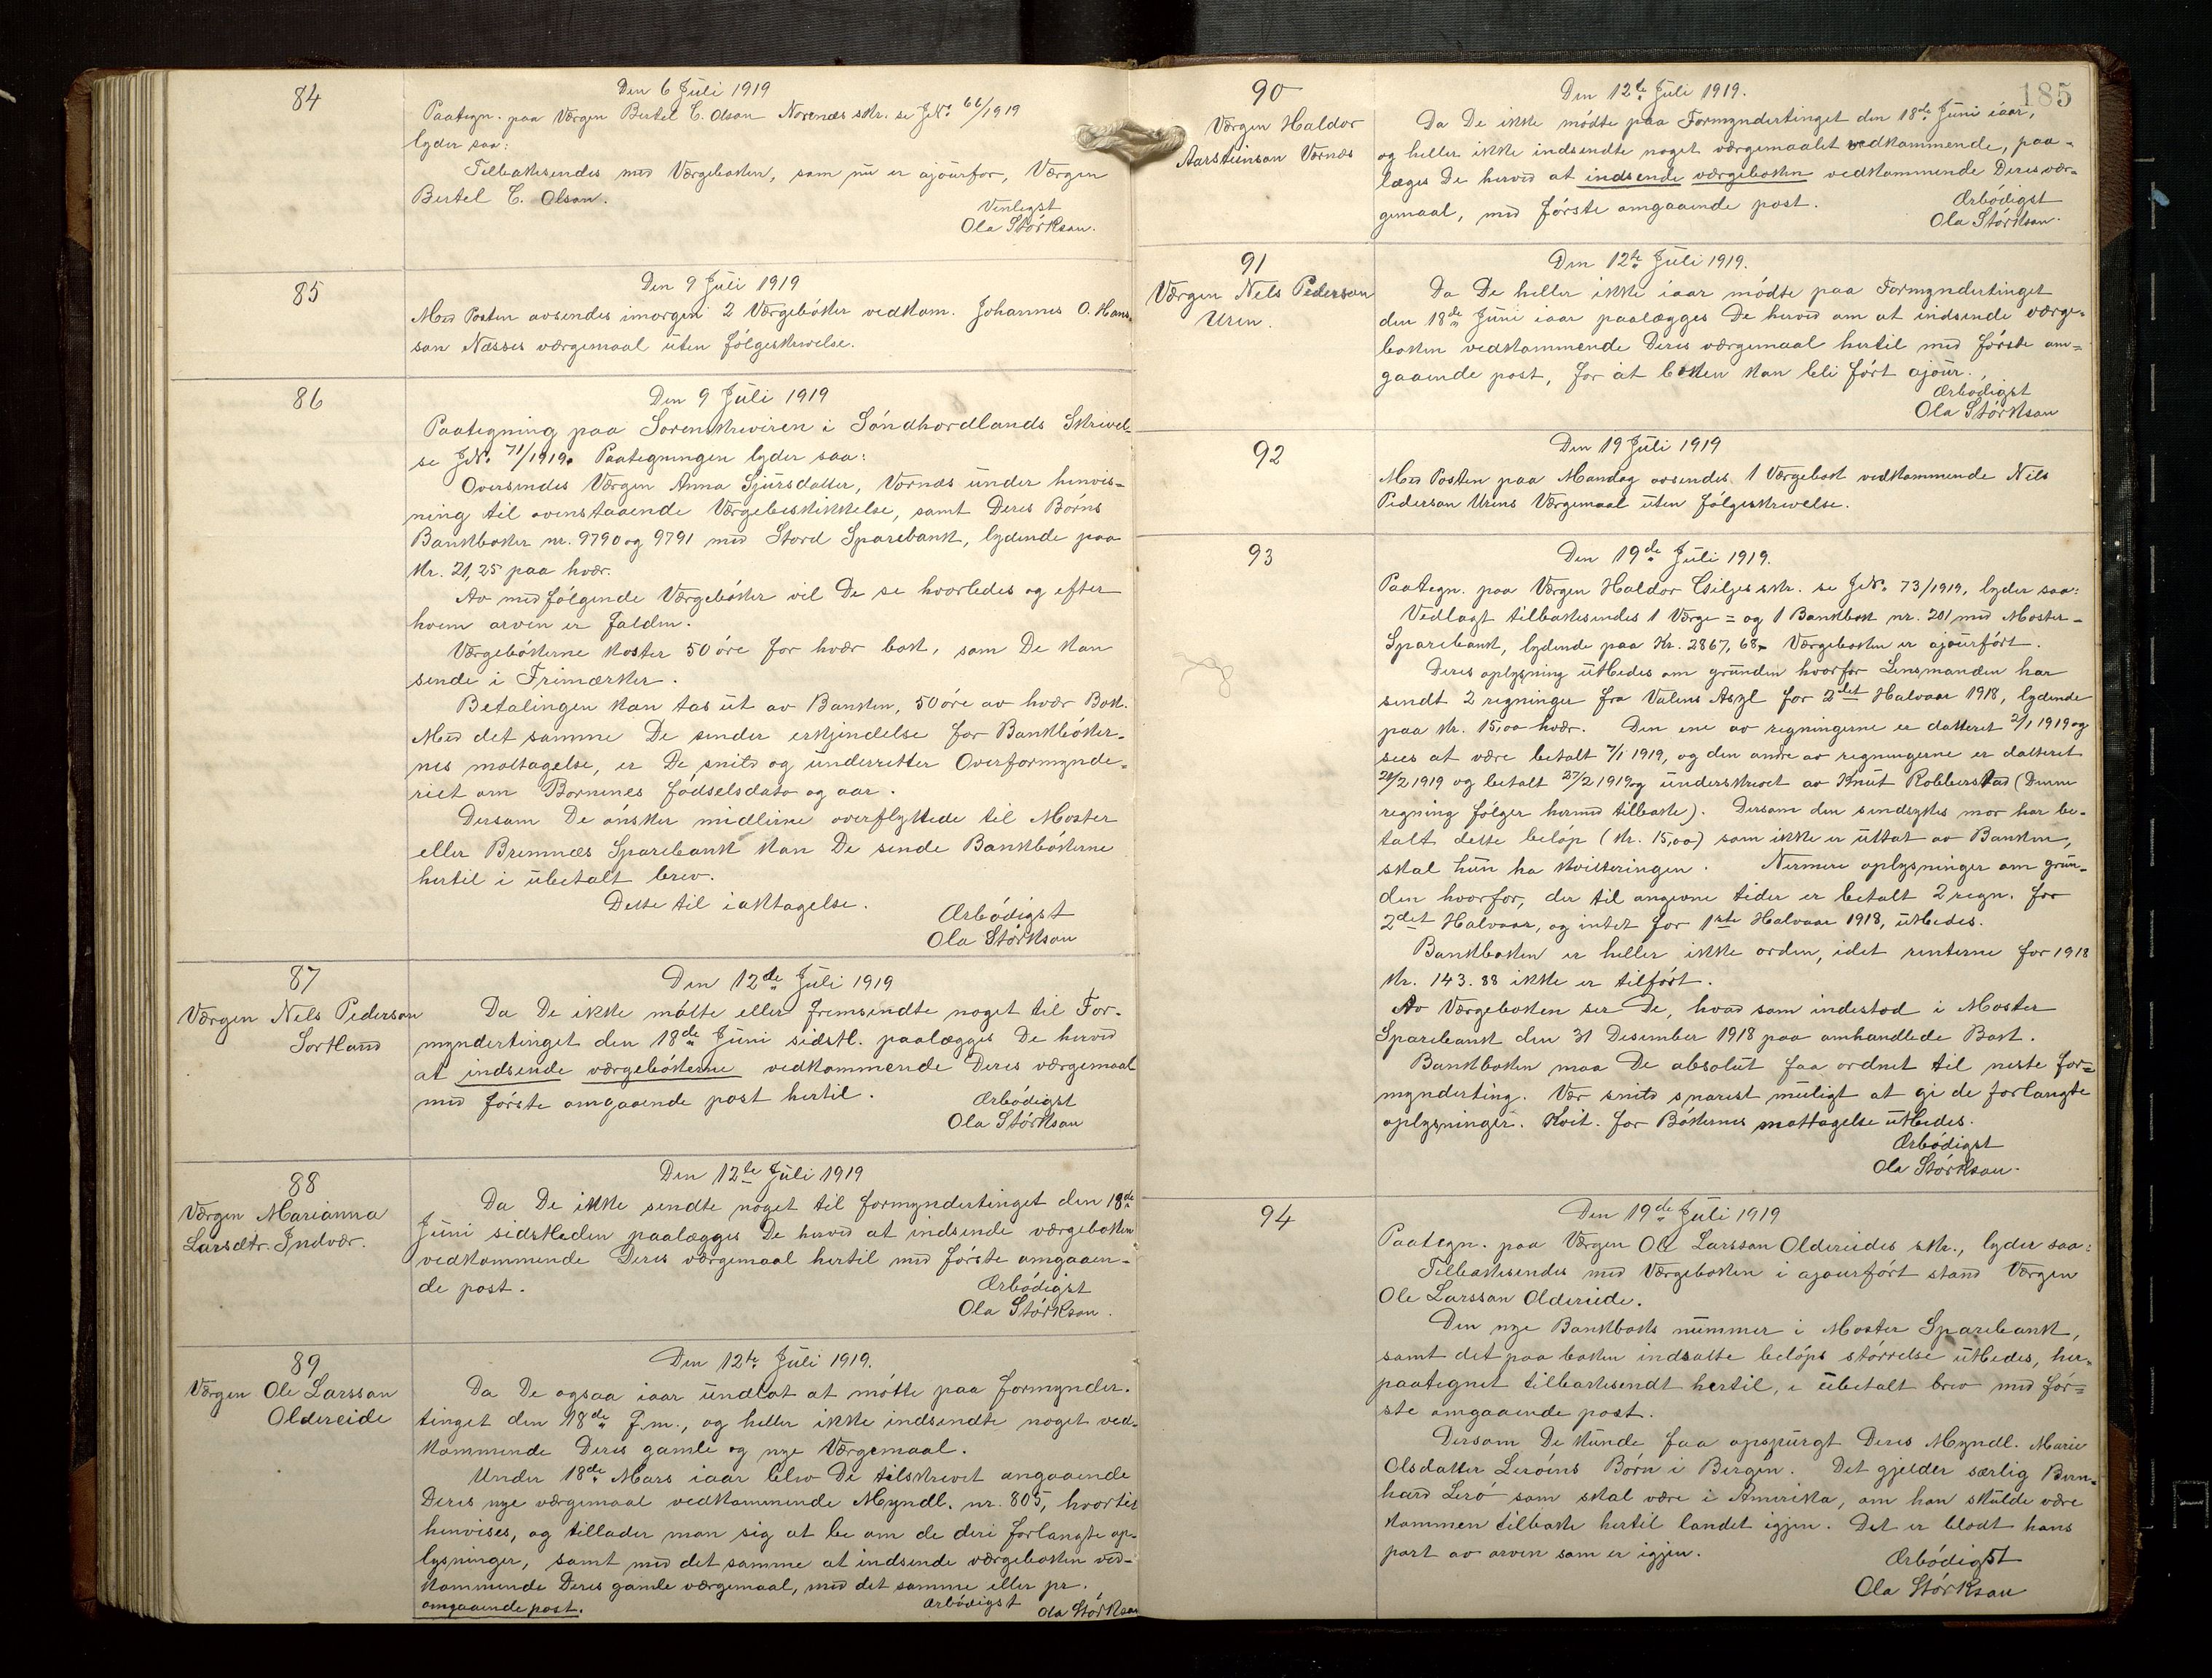 84
Den 6 Juli 1919
Paategn. paa Værgen Bertel C. Olson Norenæs skr. se J.N. 66/1919
lyder saa:
Tilbakesendes med Værgeboken, som nu er ajourfor, Værgen
Bertel C. Olson.
Venligst
Ola Störkson.
85
Den 9 Juli 1919
Med Posten avsendes imorgen 2 Værgeböker vedkom. Johannes O. Hans-
son Næsses værgemaal uten fölgeskrivelse.
86
Den 9 Juli 1919
Paategning paa Sorenskriveren i Söndhordlands Skrivel-
se J.N. 71/1919. Paategningen lyder saa:
Oversendes Værgen Anna Sjursdatter, Vornæs under henvis-
ning til ovenstaaende Værgebeskikkelse, samt Deres Börns
Bankboker nr. 9790 og 9791 med Stord Sparebank, lydende paa
kr. 21,25 paa hvær.
Av medfölgende Værgeböker vil De se hvorledes og efter
hvem arven er falden.
Værgebökerne koster 50 öre for hvær bok, som De kan
sende i Frimærker.
Betalingen kan tas ut av Banken, 50 öre av hvær Bok.
Med det samme De sender erkjendelse for Bankböker-
nes mottagelse, er De snild og underretter Overformynde-
riet om Bornenes födselsdato og aar.
Dersom De önsker midlerne overflyttede til Moster
eller Bremnæs Sparebank kan De sende Bankbökerne
hertil i ubetalt brev.
Dette til iaktagelse.
Ærbödigst
Ola Störkson
87
Værgen Nels Pederson
Sortland
Den 12te Juli 1919
Da De ikke mötte eller fremsendte noget til For-
myndertinget den 18de Juni sidstl. paalægges De herved
at indsende værgebökerne vedkommende Deres værgemaal
med förste omgaaende post hertil.
Ærbödigst
Ola Störkson
88
Værgen Marianna
Larsdtr. Indvær.
Den 12te Juli 1919
Da De ikke sendte noget til formyndertinget den 18de
Juni sidstleden paalægges De herved at indsende værgeboken
vedkommende Deres værgemaal hertil med förste omgaaen-
de post.
Ærbödigst
Ola Störkson.
89
Værgen Ole Larsson
Oldereide
Den 12te Juli 1919.
Da De ogsaa iaar undlot at mötte paa formynder-
tinget den 18de f.m., og heller ikke indsendte noget ved-
kommende Deres gamle og nye Værgemaal.
Under 18de Mars iaar blev De tilskrevet angaaende
Deres nye værgemaal vedkommende Myndl. nr. 805, hvortil
henvises, og tillader man sig at be om de deri forlangte op-
lysninger, samt med det samme at indsende værgeboken ved-
kommende Deres gamle værgemaal, med det samme eller pr.
omgaaende post.
Ærbödigst Ola Störkson
185
90
Værgen Haldor
Aarsteinson Vornæs
Den 12te Juli 1919.
Da De ikke mödte paa Formyndertinget den 18de Juni iaar,
og heller ikke indsendte noget værgemaalet vedkommende, paa-
læges De herved at indsende værgeboken vedkommende Deres vær-
gemaal, med förste omgaaende post.
Ærbödigst
Ola Störkson.
91
Værgen Nels Pederson
Uren.
Den 12te Juli 1919.
Da De heller ikke iaar mödte paa Formyndertinget
den 18de Juni iaar paalægges De herved om at indsende værge-
boken vedkommende Deres værgemaal hertil med förste om=
gaaende post, for at boken kan bli fört ajour.
Ærbödigst
Ola Störkson
92
Den 19 Juli 1919
Med Posten paa Mandag avsendes 1 Værgebok vedkommende Nils
Pederson Urens Værgemaal uten fölgeskrivelse.
93
Den 19de Juli 1919.
Paategn. paa Værgen Haldor Gsiljes skr. se J.N. 73/1919, lyder saa:
Vedlagt tilbakesendes 1 Værge = og 1 Bankbok nr. 201 med Moster-
Sparebank, lydende paa Kr. 2867,68. Værgeboken er ajourfört.
Deres oplysning utbedes om grunden hvorfor Lensmanden har
sendt 2 regninger fra Valens Asyl for 2det Halvaar 1918, lydende
paa kr. 15,00 hvær. Den ene av regningerne er datteret 2/1 1919 og
sees at være betalt 7/1 1919, og den andre av regningerne er datteret
20/2 1919 og betalt 27/2 1919 og underskrevet av Knut Robberstad (Denne
regning fölger hermed tilbake). Dersom den sindsykes mor har be-
talt dette belöp (kr. 15,00) som ikke er uttat av Banken,
skal hun ha kvitteringen. Nermere oplysninger om grun-
den hvorfor, der til angivne tider er betalt 2 regn. for
2det Halvaar, og intet for 1ste Halvaar 1918, utbedes.
Bankboken er heller ikke orden, idet renterne for 1918
kr. 143.88 ikke er tilfört.
Av Værgeboken ser De, hvad som indestod i Moster
Sparebank den 31 Desember 1918 paa omhandlede Bok.
Bankboken maa De absolut faa ordnet til neste for=
mynderting. Vær snild snarest muligt at gi de forlangte
oplysninger. Kvit. for Bökernes mottagelse utbedes.
Ærbödigst
Ola Störkson.
94
Den 19de Juli 1919
Paategn. paa Værgen Ole Larsson Oldereides skr., lyder saa:
Tilbakesendes med Værgeboken i ajourfört stand Værgen
Ole Larsson Oldereide.
Den nye Bankboks nummer i Moster Sparebank,
samt det paa boken indsatte belöps störrelse utbedes, her-
paategnet tilbakesendt hertil, i ubetalt brev med för=
ste omgaaende post.
Dersom De kunde faa opspurgt Deres Myndl. Marie
Olsdatter Leröens Börn i Bergen. Det gjelder særlig Bern-
hard Lerö som skal være i Amerika, om han skulde være
kommen tilbake hertil landet igjen. Det er blodt hans
part av arven som er igjen.
Ærbödigst
Ola Störkson